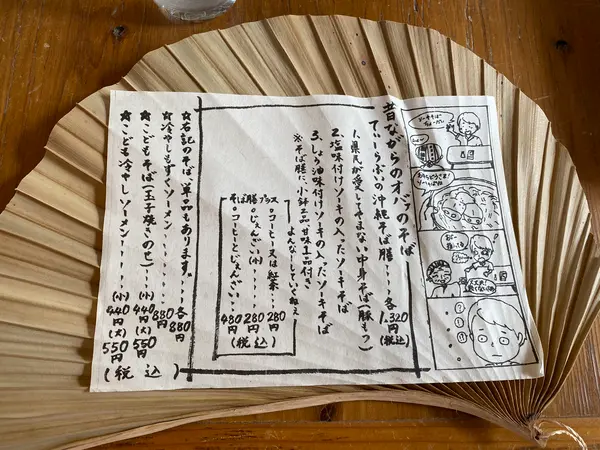 昔ながらのオバァのそば
てぃーらぶいの沖縄そば膳・・・各1,320円(税込)
1.県民が愛してやまない中身そば(豚もつ)
2.塩味付けソーキの入ったソーキそば
3.しょう油味付けソーキの入ったソーキそば
※そば膳に、小鉢三品 甘味1品付き
よんなーしていってねぇ
そば膳プラス
○コーヒー又は紅茶・・・280円
○じぇんざい(小)・・・280円
○コーヒーとじぇんざい・・480円
(税込)
☆右記のそば、単品もあります。・・・各880円
☆冷やしもずくソーメン・・・・880円
☆こどもそば(玉子焼きのせ)・・・(小)440円(大)550円
☆こども冷やしソーメン・・・・(小)440円(大)550円
(税込)